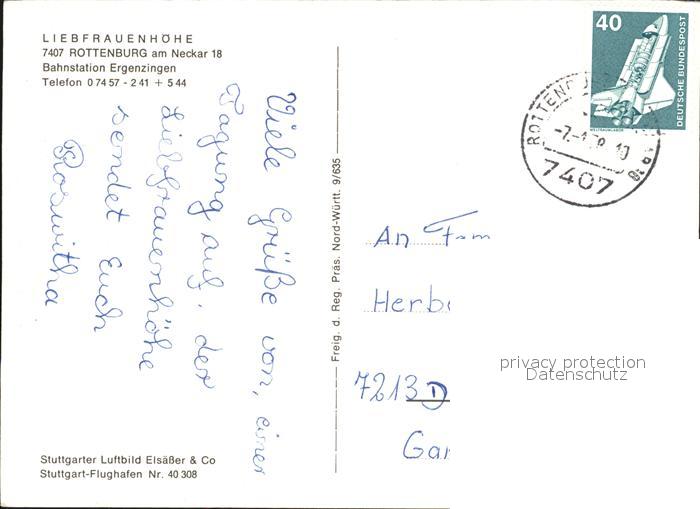 LIEBFRAUENHÖHE
7407 ROTTENBURG am Neckar 18
Bahnstation Ergenzingen
Telefon 0 74 57 - 2 41 + 5 44
Viele Grüße von, einer
Tagung auf, der
Liebfrauenhöhe
sendet Euch
Roswitha
Stuttgarter Luftbild Elsäßer & Co
Stuttgart-Flughafen Nr. 40 308
Freig. d. Reg. Präs. Nord-Württ. 9/635
40
DEUTSCHE BUNDESPOST
WELTRAUMLABOR
7407
An Fam
Herb
7213 D
Gar
privacy protection
Datenschutz